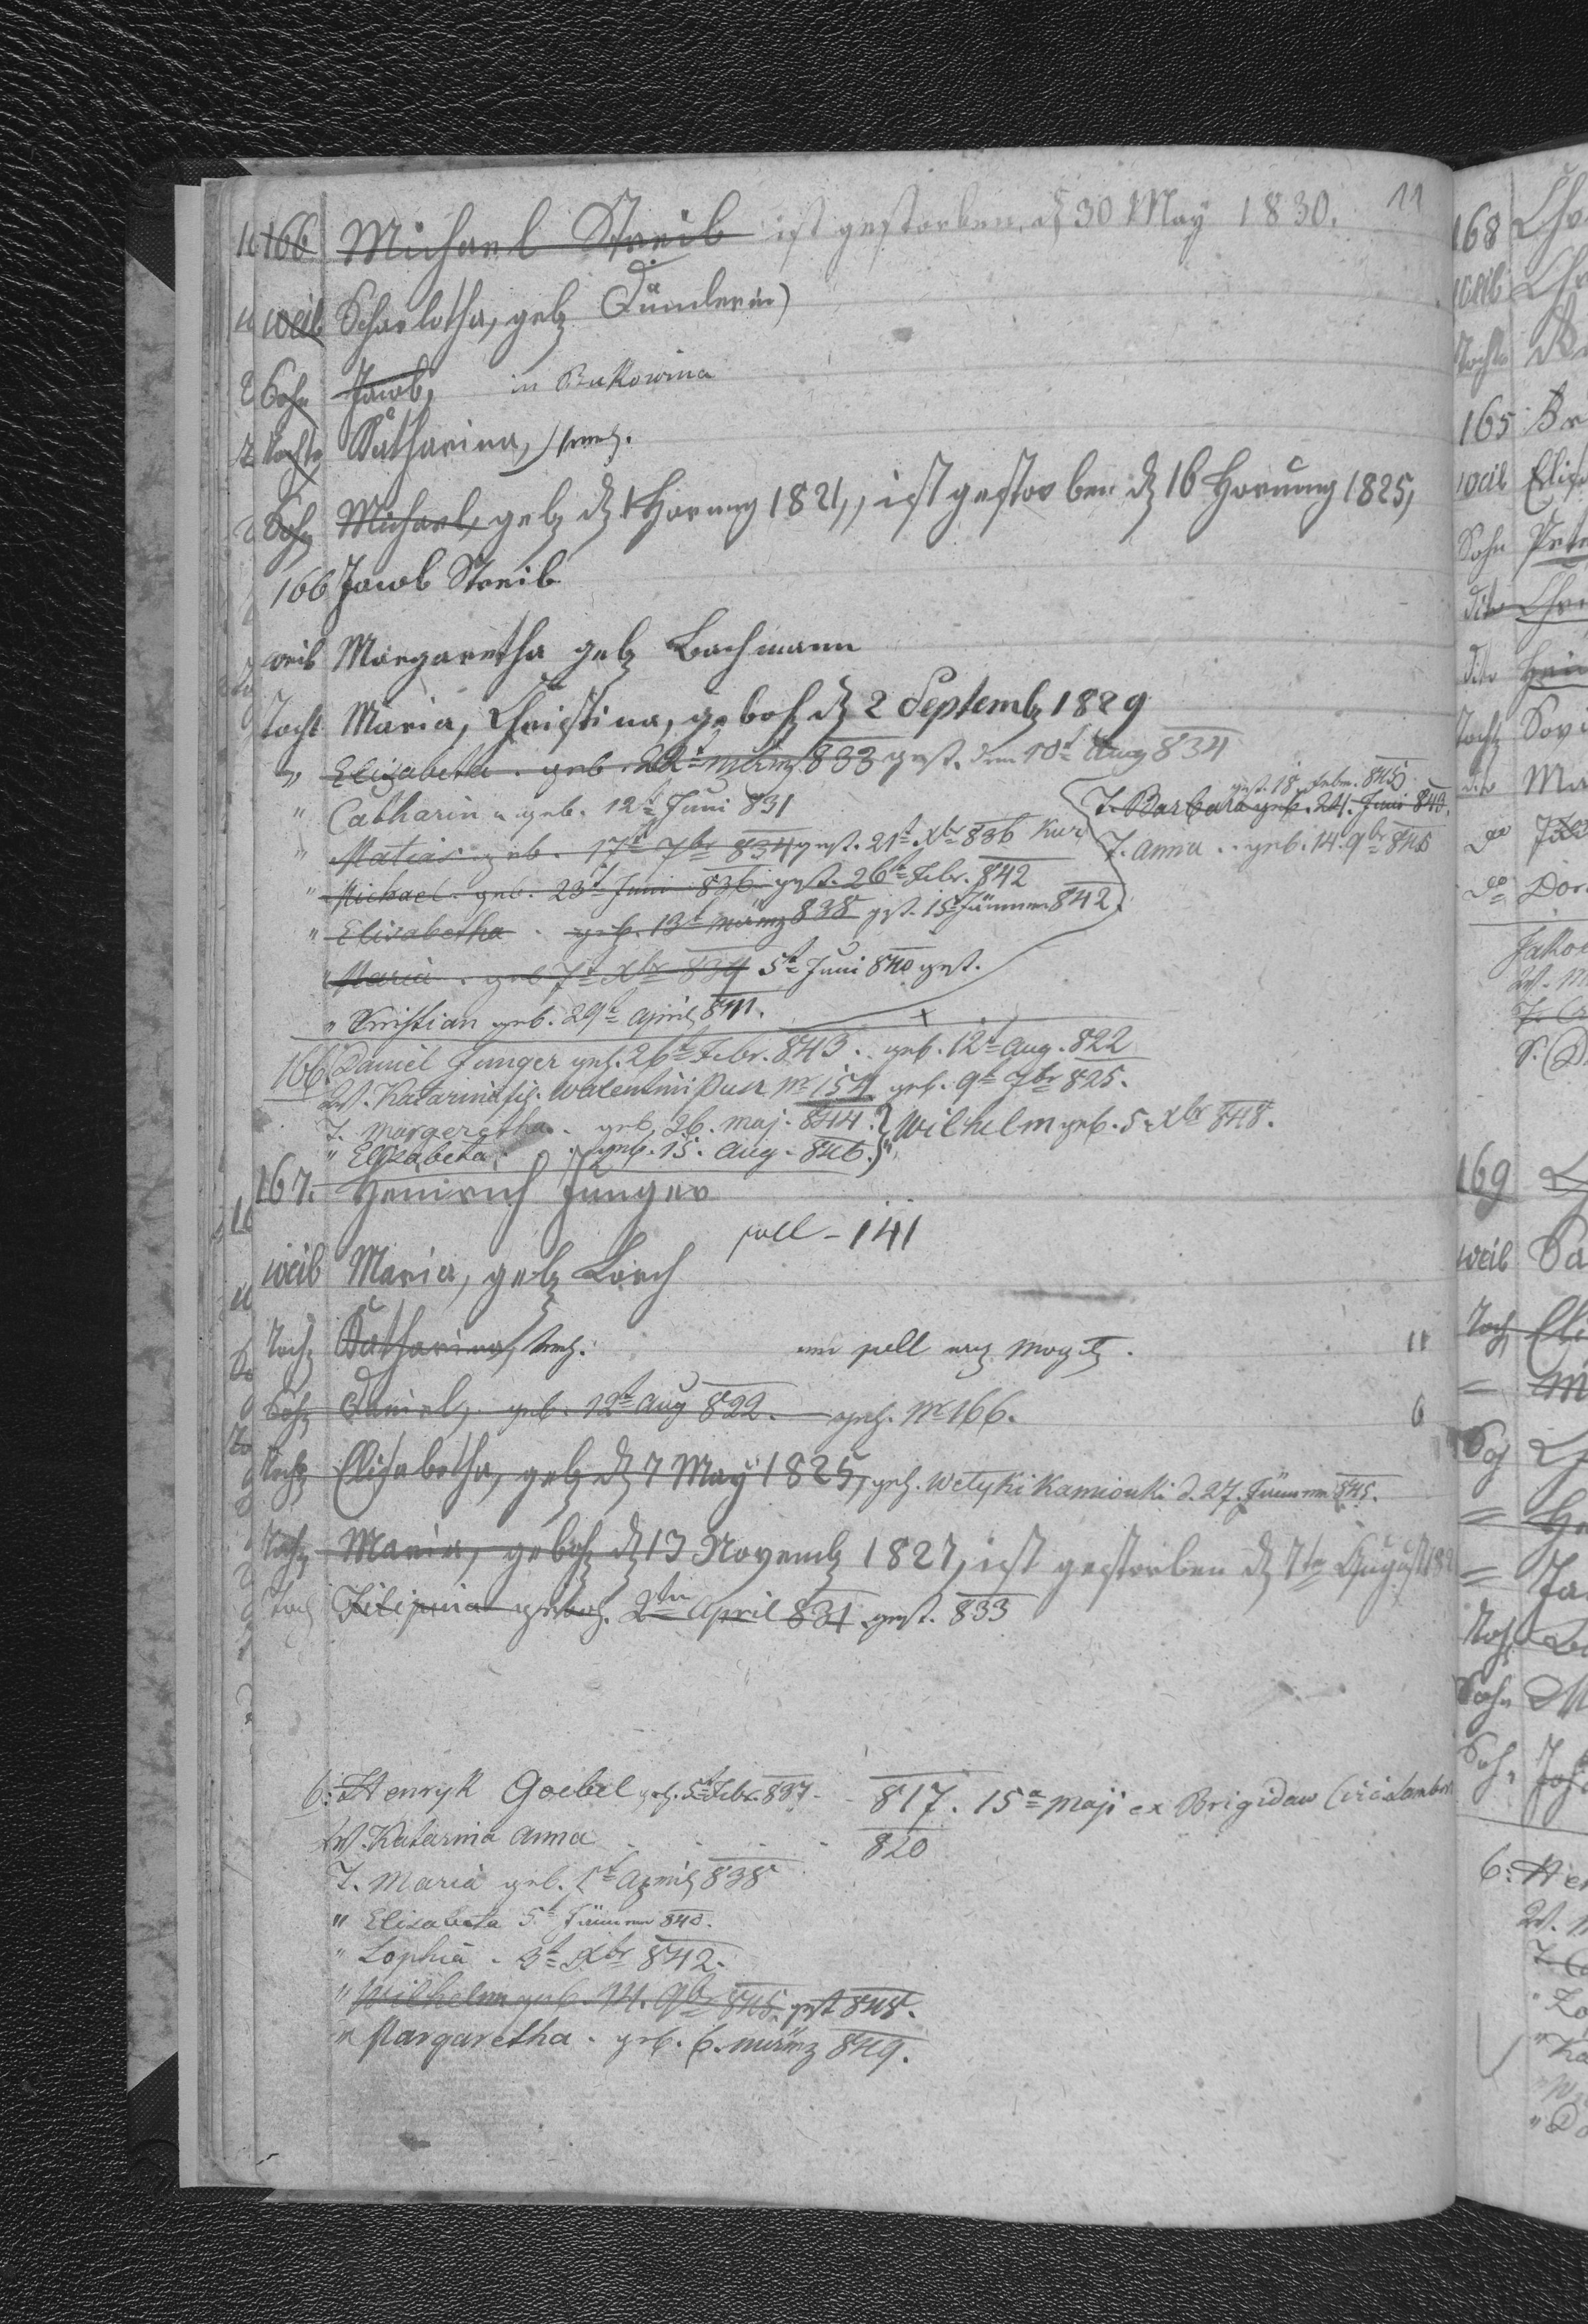 11
166 Michael Streib ist gestorben d 30 May 1830.
weib Scharlotha, geb Dümlerin)
Sohn Jacob, in Bukowina
Tocht Katharina,
Sohn Michael, geb d 1 Hornung 1821,, ist gestorben d 16 Hornung 1825,
166 Jacob Streib
weib Margaretha geb Bachmann
Tocht Maria, Christina, geboh d 2 Septemb 1829
" Elisabeta . geb. 22t März 833 gest. den 10t Aug 834
" Catharina geb. 12t Juni 831
" Matias geb. 17t 7br 834 gest. 21t Xbr 836
" Michael . geb. 23t Juni 836 gest. 26t Febr. 842
" Elisabetha . geb. 13t März 838 gest. 15t Jänner 842
" Maria . geb 7t Xbr 834 5t Juni 840 gest.
" Kristian geb. 29t April 841.
gest. 18. Febr. 845
T. Barbara geb. 24. Juni 843.
T. Anna .. geb. 14. 9br 845
166. Daniel Junger geh. 26t Febr. 843 . geb. 12t Aug. 822
W. Katarina fil. Walentini Puer No 154 geb. 9t 7br 825.
T. Margeretha . geb. 26. Maj. 844.
" Elizabeta . geb. 15. Aug. 846.
" Wilhelm geb. 5. Xbr 848.
167. Heinrich Junger
pell - 141
weib Maria, geb Lorch
Toch Katharina,
11
Soh Daniel, geb. 12t Aug 822. geh. No 166.
6
Toch Elisabetha, geb d 7 May 1825, geh. Welyki Kamionki d. 27. Jänner 845.
Toch Maria, geboh d 13 Novemb 1827, ist gestorben d 7te August 182
Toch Filipina geboh. 2tn April 831 gest. 833
6. Henryk Goebel geh. 5t Febr. 837 - 817. 15a Maji ex Brigidau
W. Katarina Anna . . . . 820
T. Maria geb. 1t April 838
" Elisabeta 5t Jänner 840.
" Sophia . 3t Xbr 842.
" Wilhelm geb. 14. 9br 845. gest 848.
" Margaretha . geb. 6. März 849.
168
weib
Tocht
165
weib
Sohn
dito
dito
Toch
dito
do
do
169
weib
Toch
6.